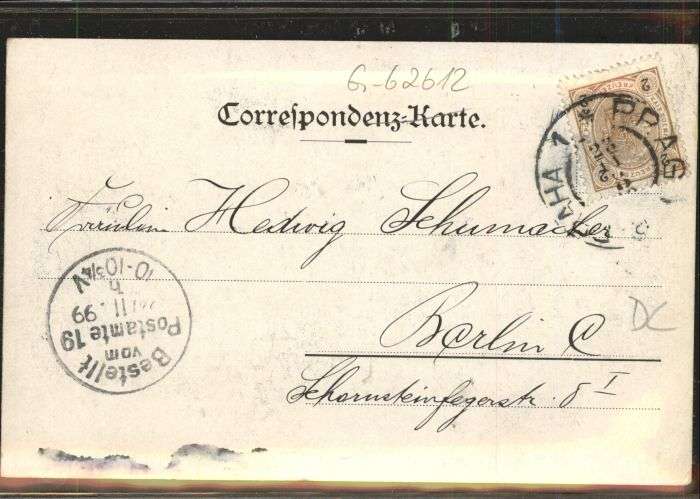 G-62612
Correspondenz-Karte.
PRAG 1 PRAHA
2
Fräulein Hedwig Schumacher
Berlin C
DC
Schornsteinfegerstr. 8 I
Bestellt
vom
Postamte 19
II. 99
10-10¾ N